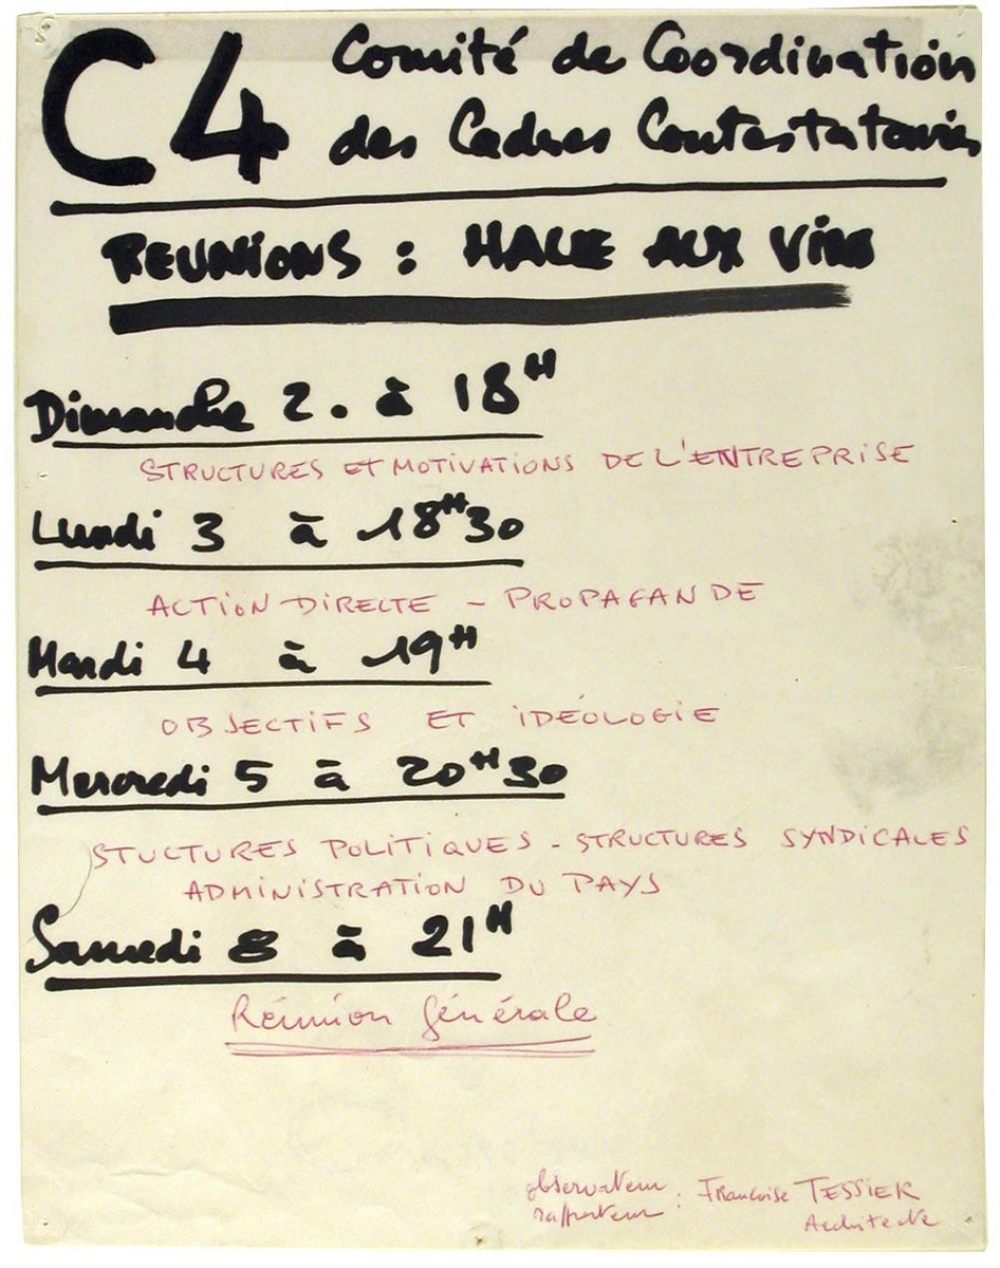 C4 Comité de Coordination
des Cadres Contestataires
REUNIONS : HALLE AUX VINS
Dimanche 2. à 18H
STRUCTURES ET MOTIVATIONS DE L'ENTREPRISE
Lundi 3 à 18H30
ACTION DIRECTE - PROPAGANDE
Mardi 4 à 19H
OBJECTIFS ET IDÉOLOGIE
Mercredi 5 à 20H30
STUCTURES POLITIQUES - STRUCTURES SYNDICALES
ADMINISTRATION DU PAYS
Samedi 8 à 21H
Réunion Générale
observateur : Francoise TESSIER
rapporteur Architecte